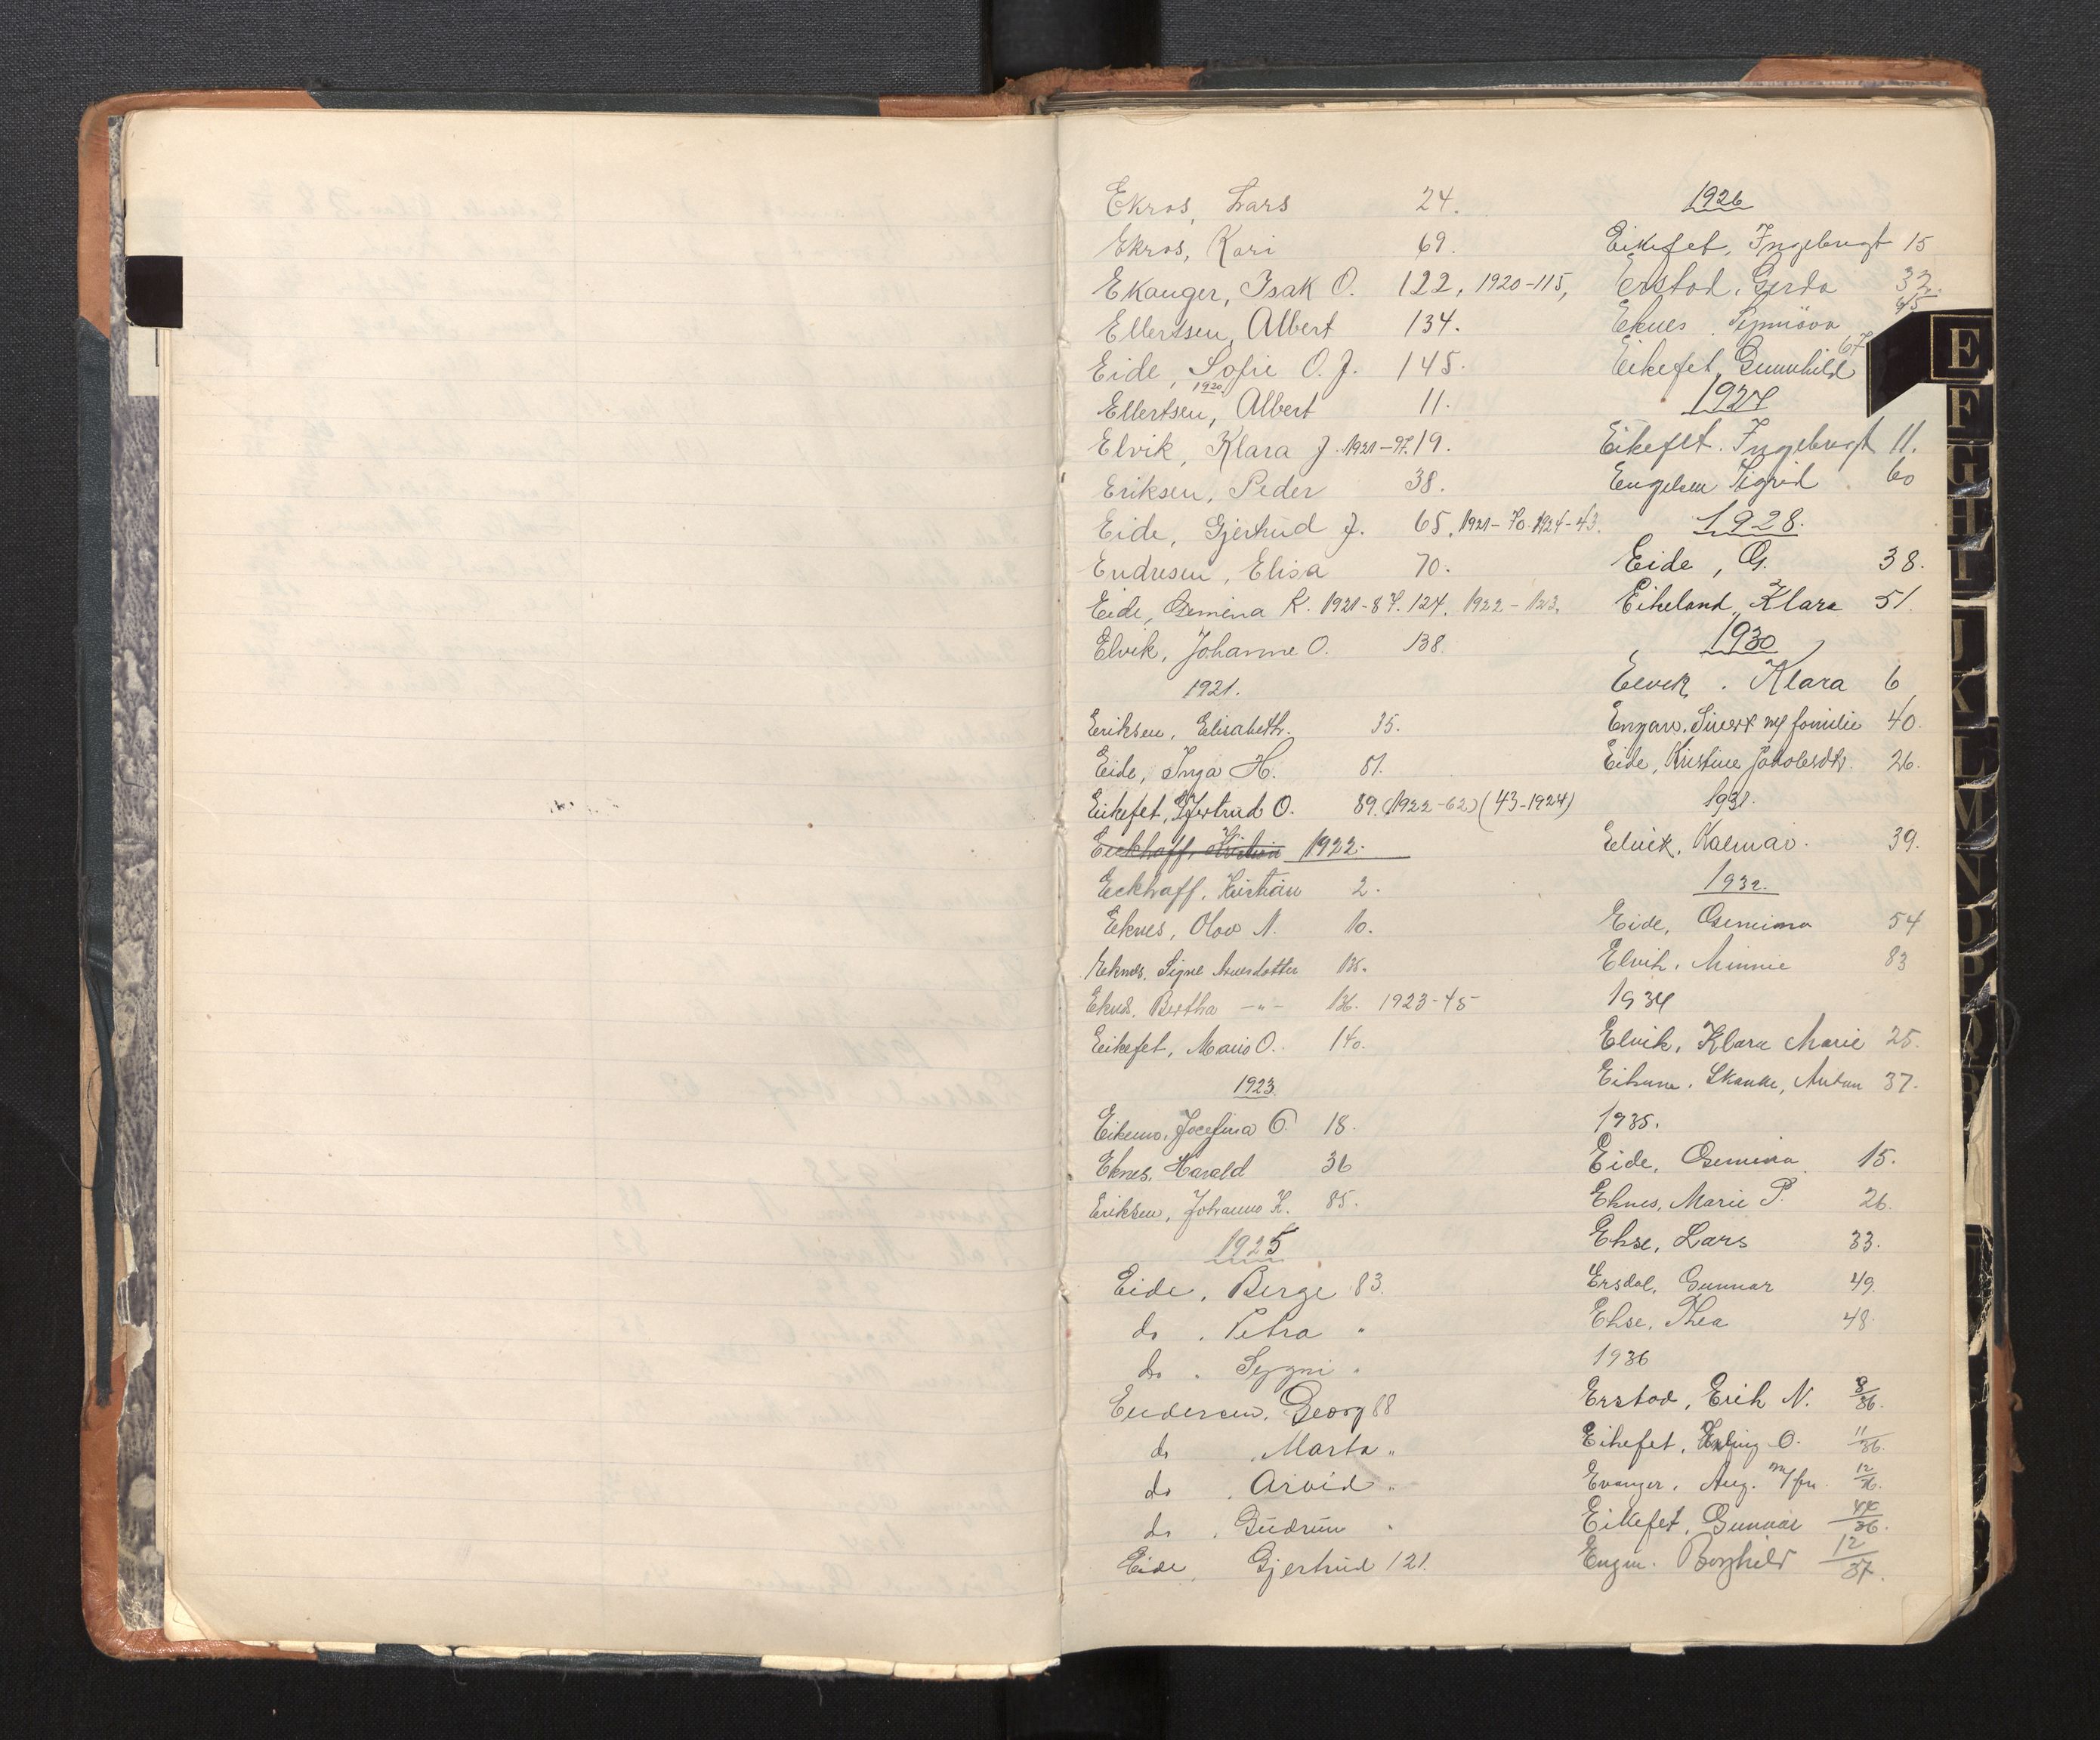 Ekros, Lars 24.
Ekros, Kari 69.
Ekanger, Isak O. 122, 1920-115,
Ellertsen, Albert 134.
Eide, Sofie O. J. 145.
1920
Ellertsen, Albert 11.
Elvik, Klara J. 1921-97. 19.
Eriksen, Peder 38.
Eide, Gjertrud J. 65. 1921-70. 1924-43.
Endresen, Elisa 70.
Eide, Osemina K. 1921-87. 124. 1922-123,
Elvik, Johanne O. 138.
1921.
Eriksen, Elisabeth. 35.
Eide, Inga H. 81.
Eikefet, Gjertrud O. 89. (1922-62) (43-1924)
Eeckhoff, Kristian 1922.
Eeckhoff, Kristian 2.
Eknes, Olav N. 10.
Eknes, Signe 136.
Eknes, Bertha -"- 136. 1923-45
Eikefet, Mario O. 140.
1923.
Eikemo, Josefina O. 18.
Eknes, Harald 36
Eriksen, Johannes K. 85.
1925
Eide, Berge 83.
do. Petra "
do. Sygni "
Endersen, Georg 88
do. Marta "
do. Arvid "
do. Gudrun "
Eide, Gjertrud 121.
1926
Eikefet, Ingebrigt 15
Erstad, Gerda 33.
Eknes, 65
Eikefet, Gunnhild 67
1927
Eikefet, Ingebrigt 11.
Engelsen Sigrid 60
1928.
Eide, G. 38.
Eikeland, Klara 51.
1930
Elvik, Klara 6
Sivert m/ familie 40.
Eide, Kristine Jakobsdtr. 26.
1931.
Elvik, Kalmar. 39.
1932.
Eide, Osemina 54
Elvik, Minnie 83
1934
Elvik, Klara Marie 25.
Skanke, Anton 37.
1935.
Eide, Osemina 15.
Eknes, Marie P. 26.
Ekse, Lars 33.
Ersdal, Gunnar 49.
Ekse, Thea 48.
1936
Erstad, Erik N. 8/36.
Eikefet, Erling O. 11/36.
Evanger, Aug. m/fru. 12/36.
Eikefet, Gunnar 44/36.
Borghild 12/37.
E
F
G
H
I
J
K
L
M
N
O
P
Q
R